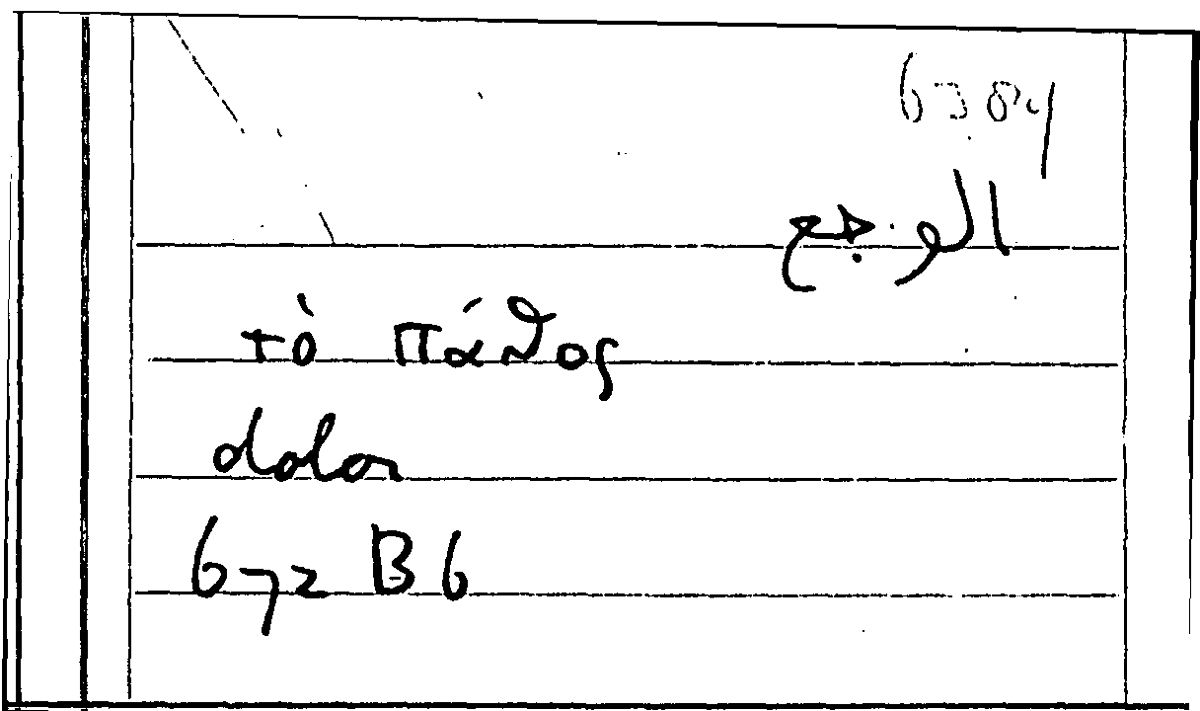 الوجع
τὸ πάθος
dolor
672 B 6